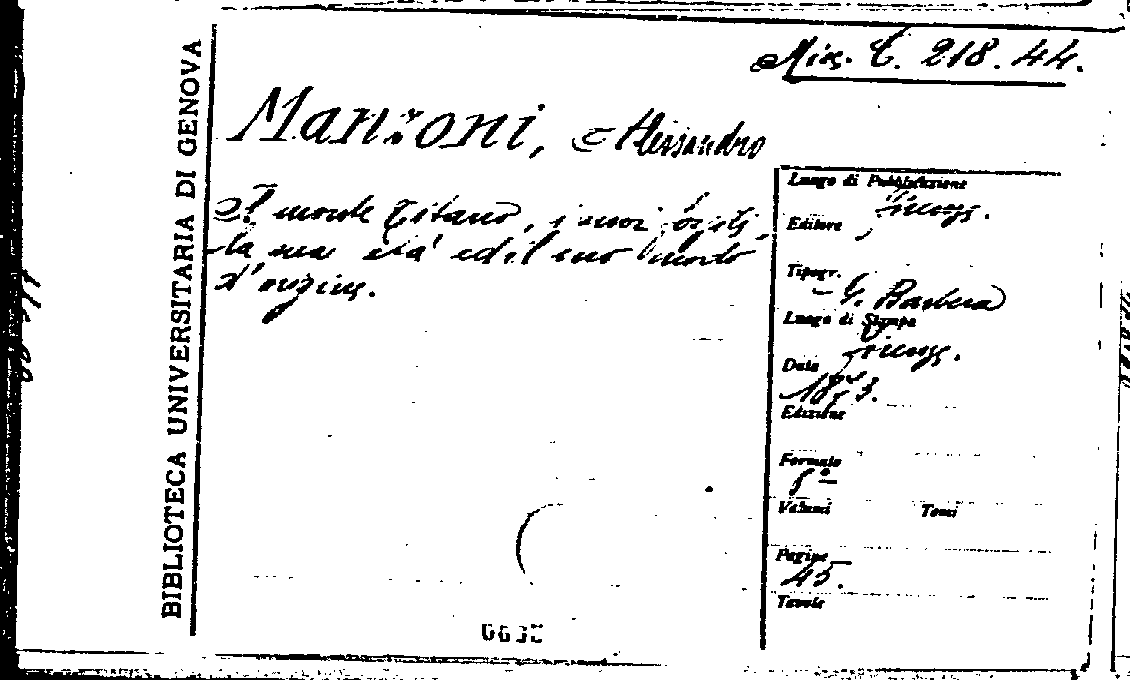 BIBLIOTECA UNIVERSITARIA DI GENOVA
Mis. C. 218. 44.
Manzoni, Alessandro
Il monte Titano, i suoi fossili,
la sua età ed il suo modo
d'origine.
Luogo di Pubblicazione
Firenze.
Editore
Tipogr.
G. Barbera
Luogo di Stampa
Firenze.
Data
1873.
Edizione
Formato
8º
Volumi Tomi
Pagine
45.
Tavole